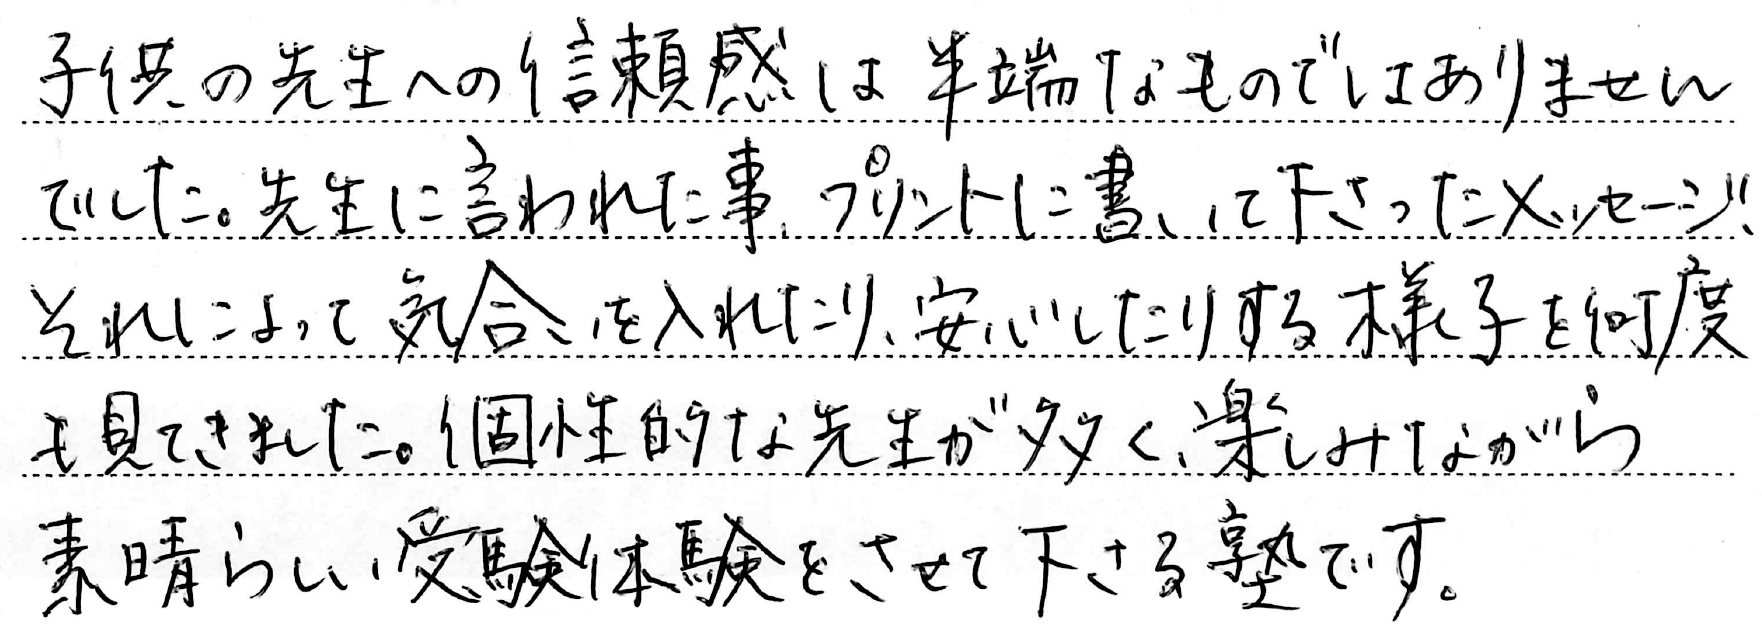 子供の先生への信頼感は半端なものではありません
でした。先生に言われた事、プリントに書いて下さったメッセージ、
それによって気合いを入れたり、安心したりする様子を何度
も見てきました。個性的な先生が多く、楽しみながら
素晴らしい受験体験をさせて下さる塾です。